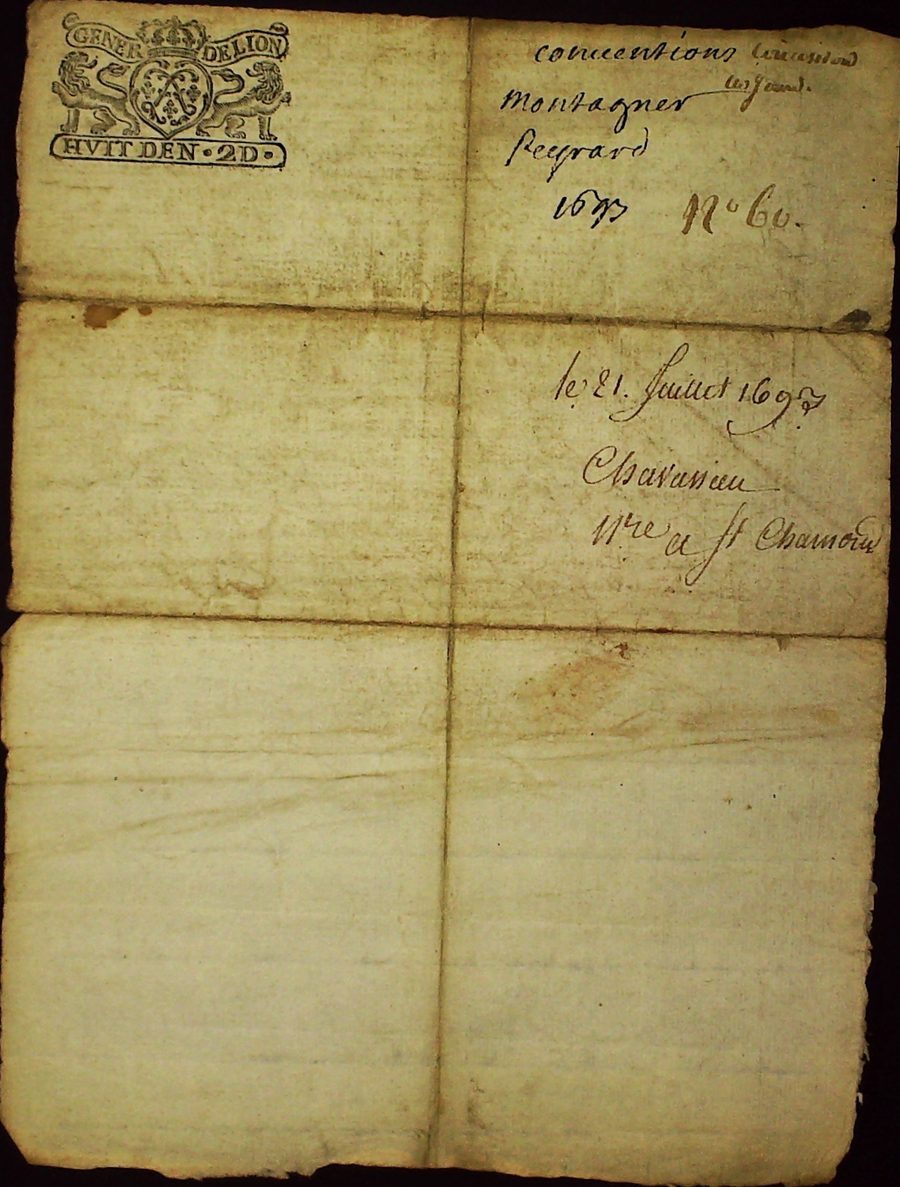 GENER DELION
HVIT DEN · 2D ·
conventions
montagner
peyrard
1693 N° 60.
le 21. Juillet 1693
Chavassieu
Nre a St Chamond